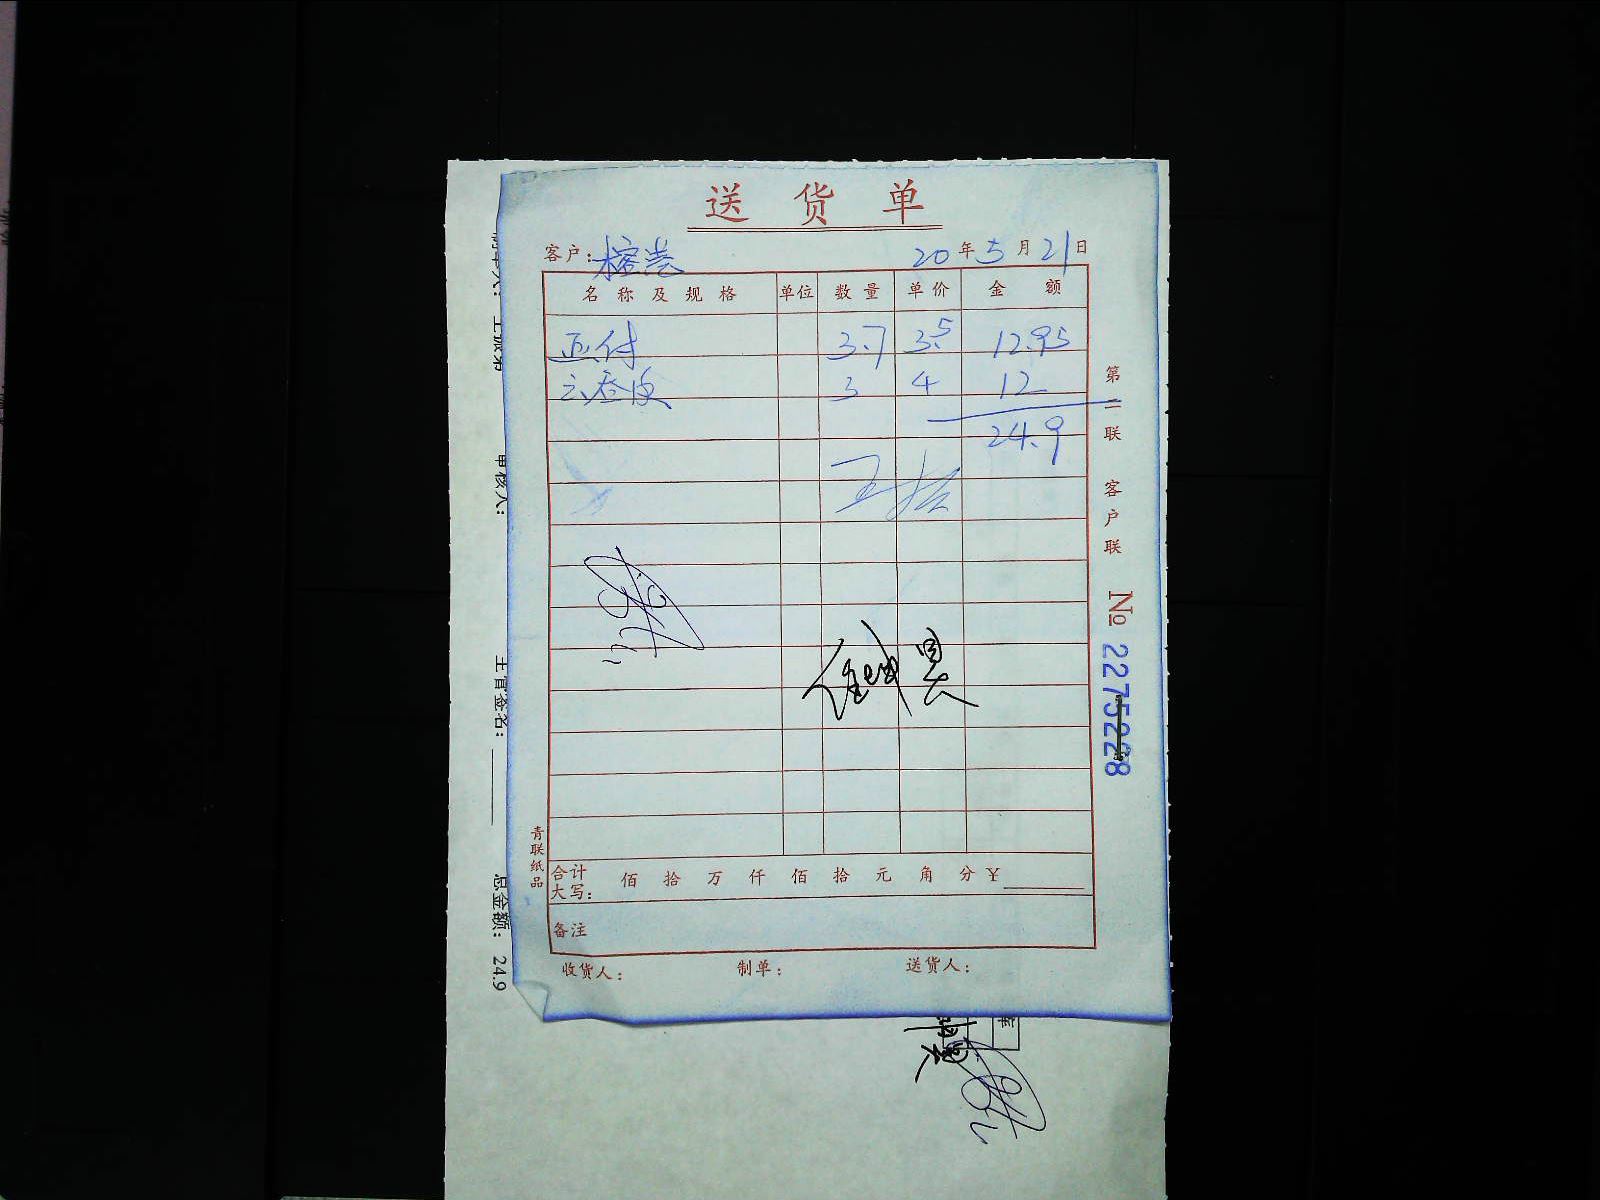 送 货 单
客户:
20 年 5 月 21 日
名 称 及 规 格 单位 数 量 单 价 金 额
豆付 3.7 3.5 12.95
云卷皮 3 4 12
24.9
第二联 客户联
№ 2275228
青联纸品
合计大写: 佰 拾 万 仟 佰 拾 元 角 分 ¥
备注
收货人: 制单: 送货人:
审核人:
士官签名:
总金额: 24.9